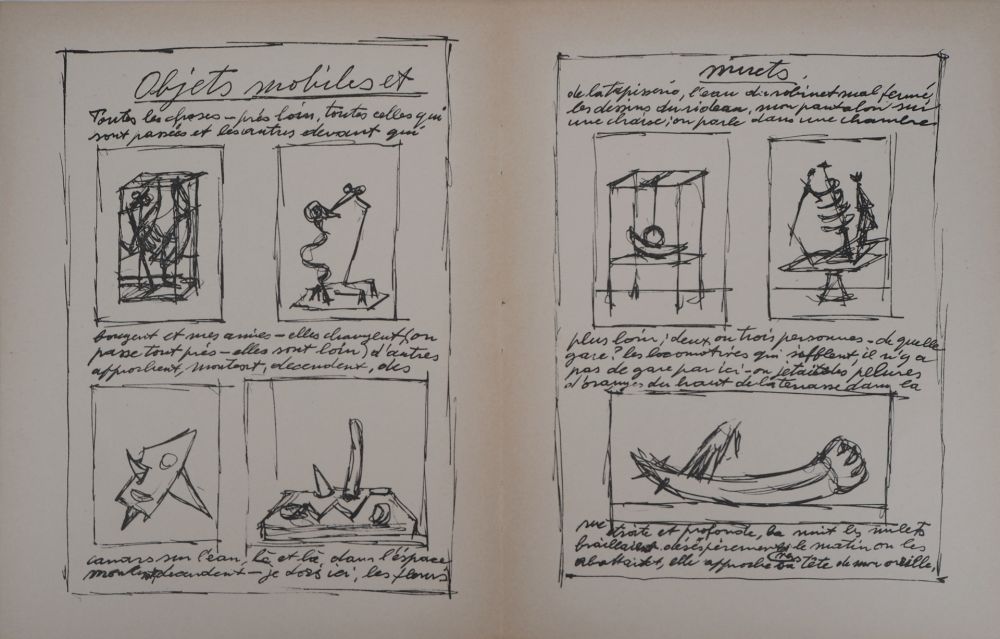 Objets mobiles et
Toutes les choses - près loin, toutes celles qui
sont passées et les autres devant qui
bougent et mes amies - elles changent (on
passe tout près - elles sont loin) d'autres
approchent, montent, decendent, des
canars sur l'eau, là et là, dans l'éspace
montent decendent - je dors ici, les fleurs
muets
de la tapisserie, l'eau du robinet mal fermé
les dessins du rideau, mon pantalon sur
une chaise; on parle dans une chambre
plus loin; deux ou trois personnes - de quelle
gare? les locomotives qui sifflent, il n'y a
pas de gare par ici - on jetait des pelures
d'oranges du haut de la terrasse dans la
rue etroite et profonde, la nuit les mulets
braillaient desésperement, le matin on les
abattait, elle approche sa tête de mon oreille,